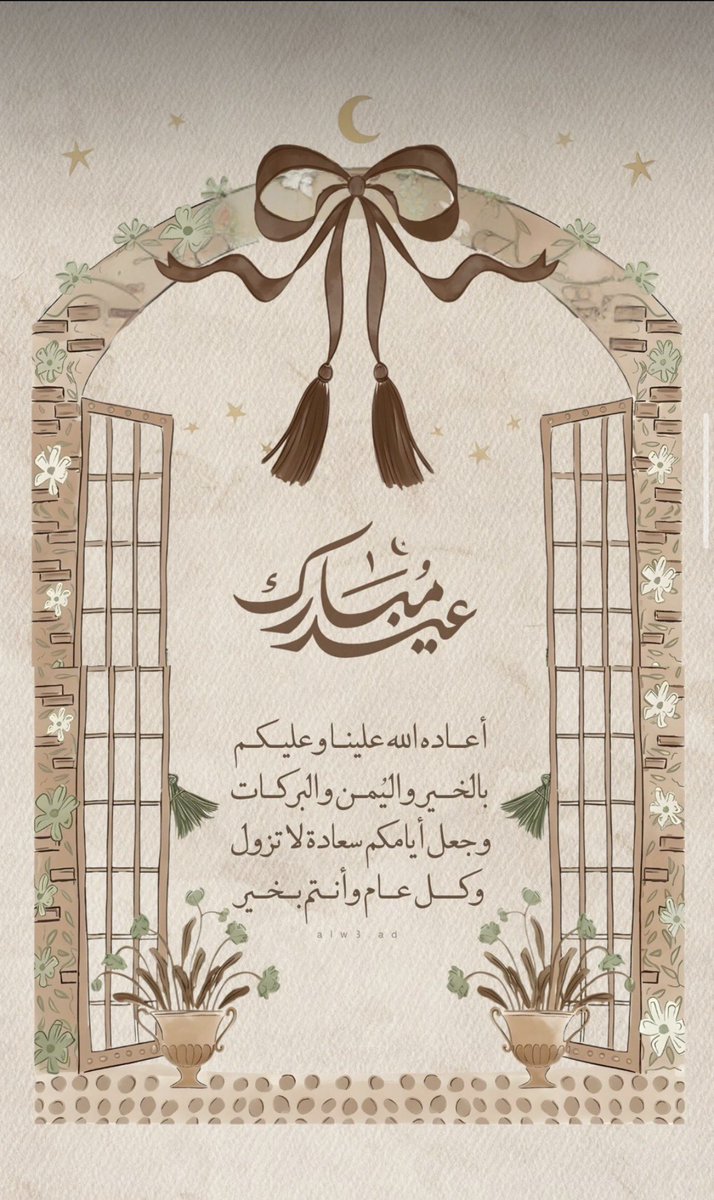 عيد مُبارك
أعاده الله علينا وعليكم
بالخير واليُمن والبركات
وجعل أيامكم سعادة لا تزول
وكل عام وأنتم بخير
alw3.ad